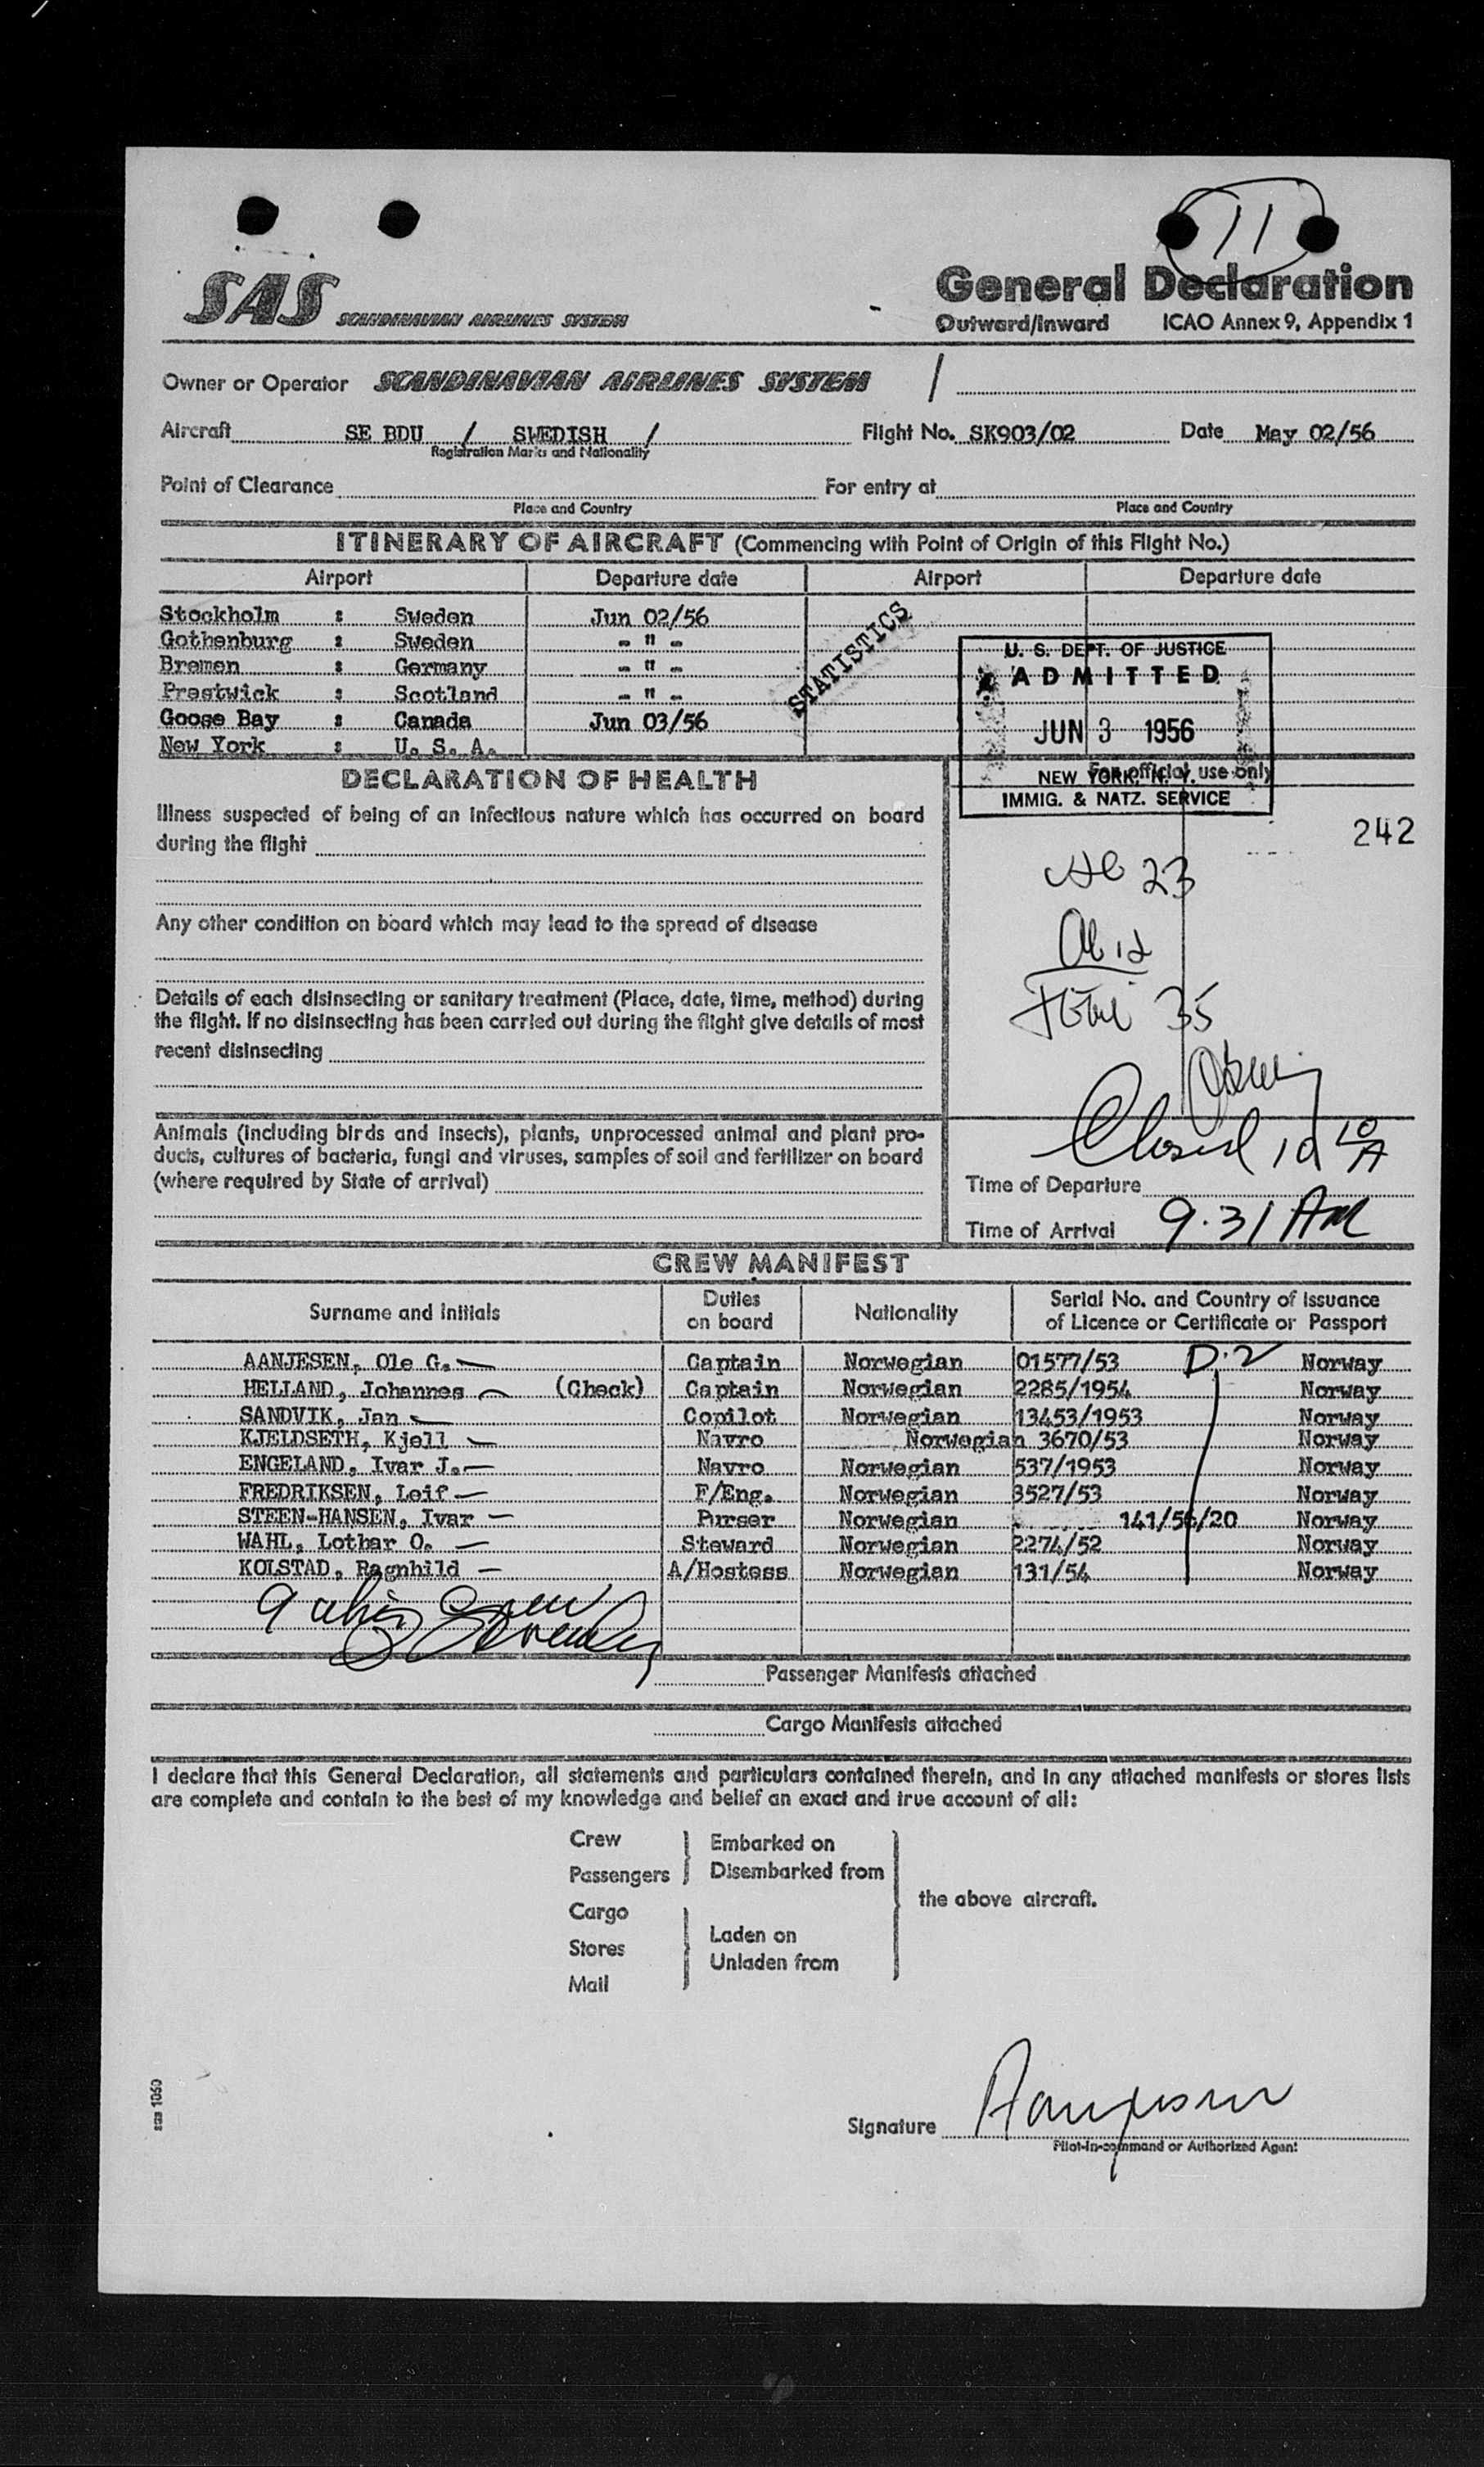 11
SAS SCANDINAVIAN AIRLINES SYSTEM
General Declaration
Outward/Inward ICAO Annex 9, Appendix 1
Owner or Operator SCANDINAVIAN AIRLINES SYSTEM /
Aircraft SE BDU / SWEDISH / Flight No. SK903/02 Date May 02/56
Registration Marks and Nationality
Point of Clearance For entry at
Place and Country Place and Country
ITINERARY OF AIRCRAFT (Commencing with Point of Origin of this Flight No.)
Airport Departure date Airport Departure date
Stockholm : Sweden Jun 02/56
Gothenburg : Sweden - " -
Bremen : Germany - " -
Prestwick : Scotland - " -
Goose Bay : Canada Jun 03/56
New York : U. S. A.
STATISTICS
U. S. DEPT. OF JUSTICE
ADMITTED
JUN 3 1956
NEW YORK, N. Y.
IMMIG. & NATZ. SERVICE
For official use only
242
DECLARATION OF HEALTH
Illness suspected of being of an infectious nature which has occurred on board
during the flight
Any other condition on board which may lead to the spread of disease
Details of each disinsecting or sanitary treatment (Place, date, time, method) during
the flight. If no disinsecting has been carried out during the flight give details of most
recent disinsecting
23
12
35
Animals (including birds and insects), plants, unprocessed animal and plant pro-
ducts, cultures of bacteria, fungi and viruses, samples of soil and fertilizer on board
(where required by State of arrival)
Closed 10 10 A
Time of Departure
Time of Arrival 9.31 AM
CREW MANIFEST
Surname and initials Duties on board Nationality Serial No. and Country of Issuance of Licence or Certificate or Passport
AANJESEN, Ole G. Captain Norwegian 01577/53 D.2 Norway
HELLAND, Johannes (Check) Captain Norwegian 2285/1954 Norway
SANDVIK, Jan Copilot Norwegian 13453/1953 Norway
KJELDSETH, Kjell Navro Norwegian 3670/53 Norway
ENGELAND, Ivar J. Navro Norwegian 537/1953 Norway
FREDRIKSEN, Leif F/Eng. Norwegian 3527/53 Norway
STEEN-HANSEN, Ivar Purser Norwegian 141/56/20 Norway
WAHL, Lothar O. Steward Norwegian 2274/52 Norway
KOLSTAD, Ragnhild A/Hostess Norwegian 131/54 Norway
9 crew
Passenger Manifests attached
Cargo Manifests attached
I declare that this General Declaration, all statements and particulars contained therein, and in any attached manifests or stores lists
are complete and contain to the best of my knowledge and belief an exact and true account of all:
Crew
Passengers
Embarked on
Disembarked from
Cargo
Stores
Mail
Laden on
Unladen from
the above aircraft.
sas 1060
Signature Aanjesen
Pilot-in-command or Authorized Agent